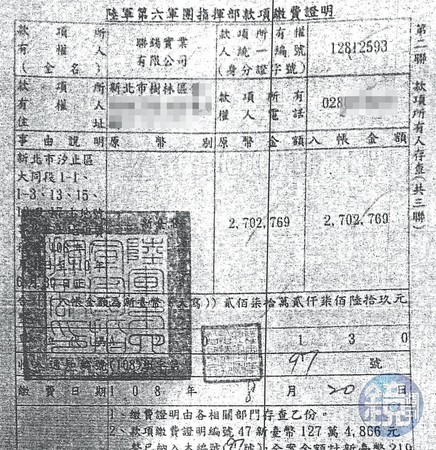 陸軍第六軍團指揮部款項繳費證明
款項所有權人(全名) 聯鍚實業有限公司 款項所有權人統一編號(身分證字號) 12812593
款項所有權人住址 新北市樹林區 款項所有權人電話 028
事由說明 原幣別 原幣金額 入帳金額
新北市汐止區
大同段1-1、
1-3、13、15、
2,702,769 2,702,769
貳佰柒拾萬貳仟柒佰陸拾玖元
0 1 3 0
97 號
繳費日期 108年 8月 20日
1、繳費證明由各相關部門存查乙份。
2、款項繳費證明編號47新臺幣127萬4,866元
第二聯 款項所有人存查(共三聯)